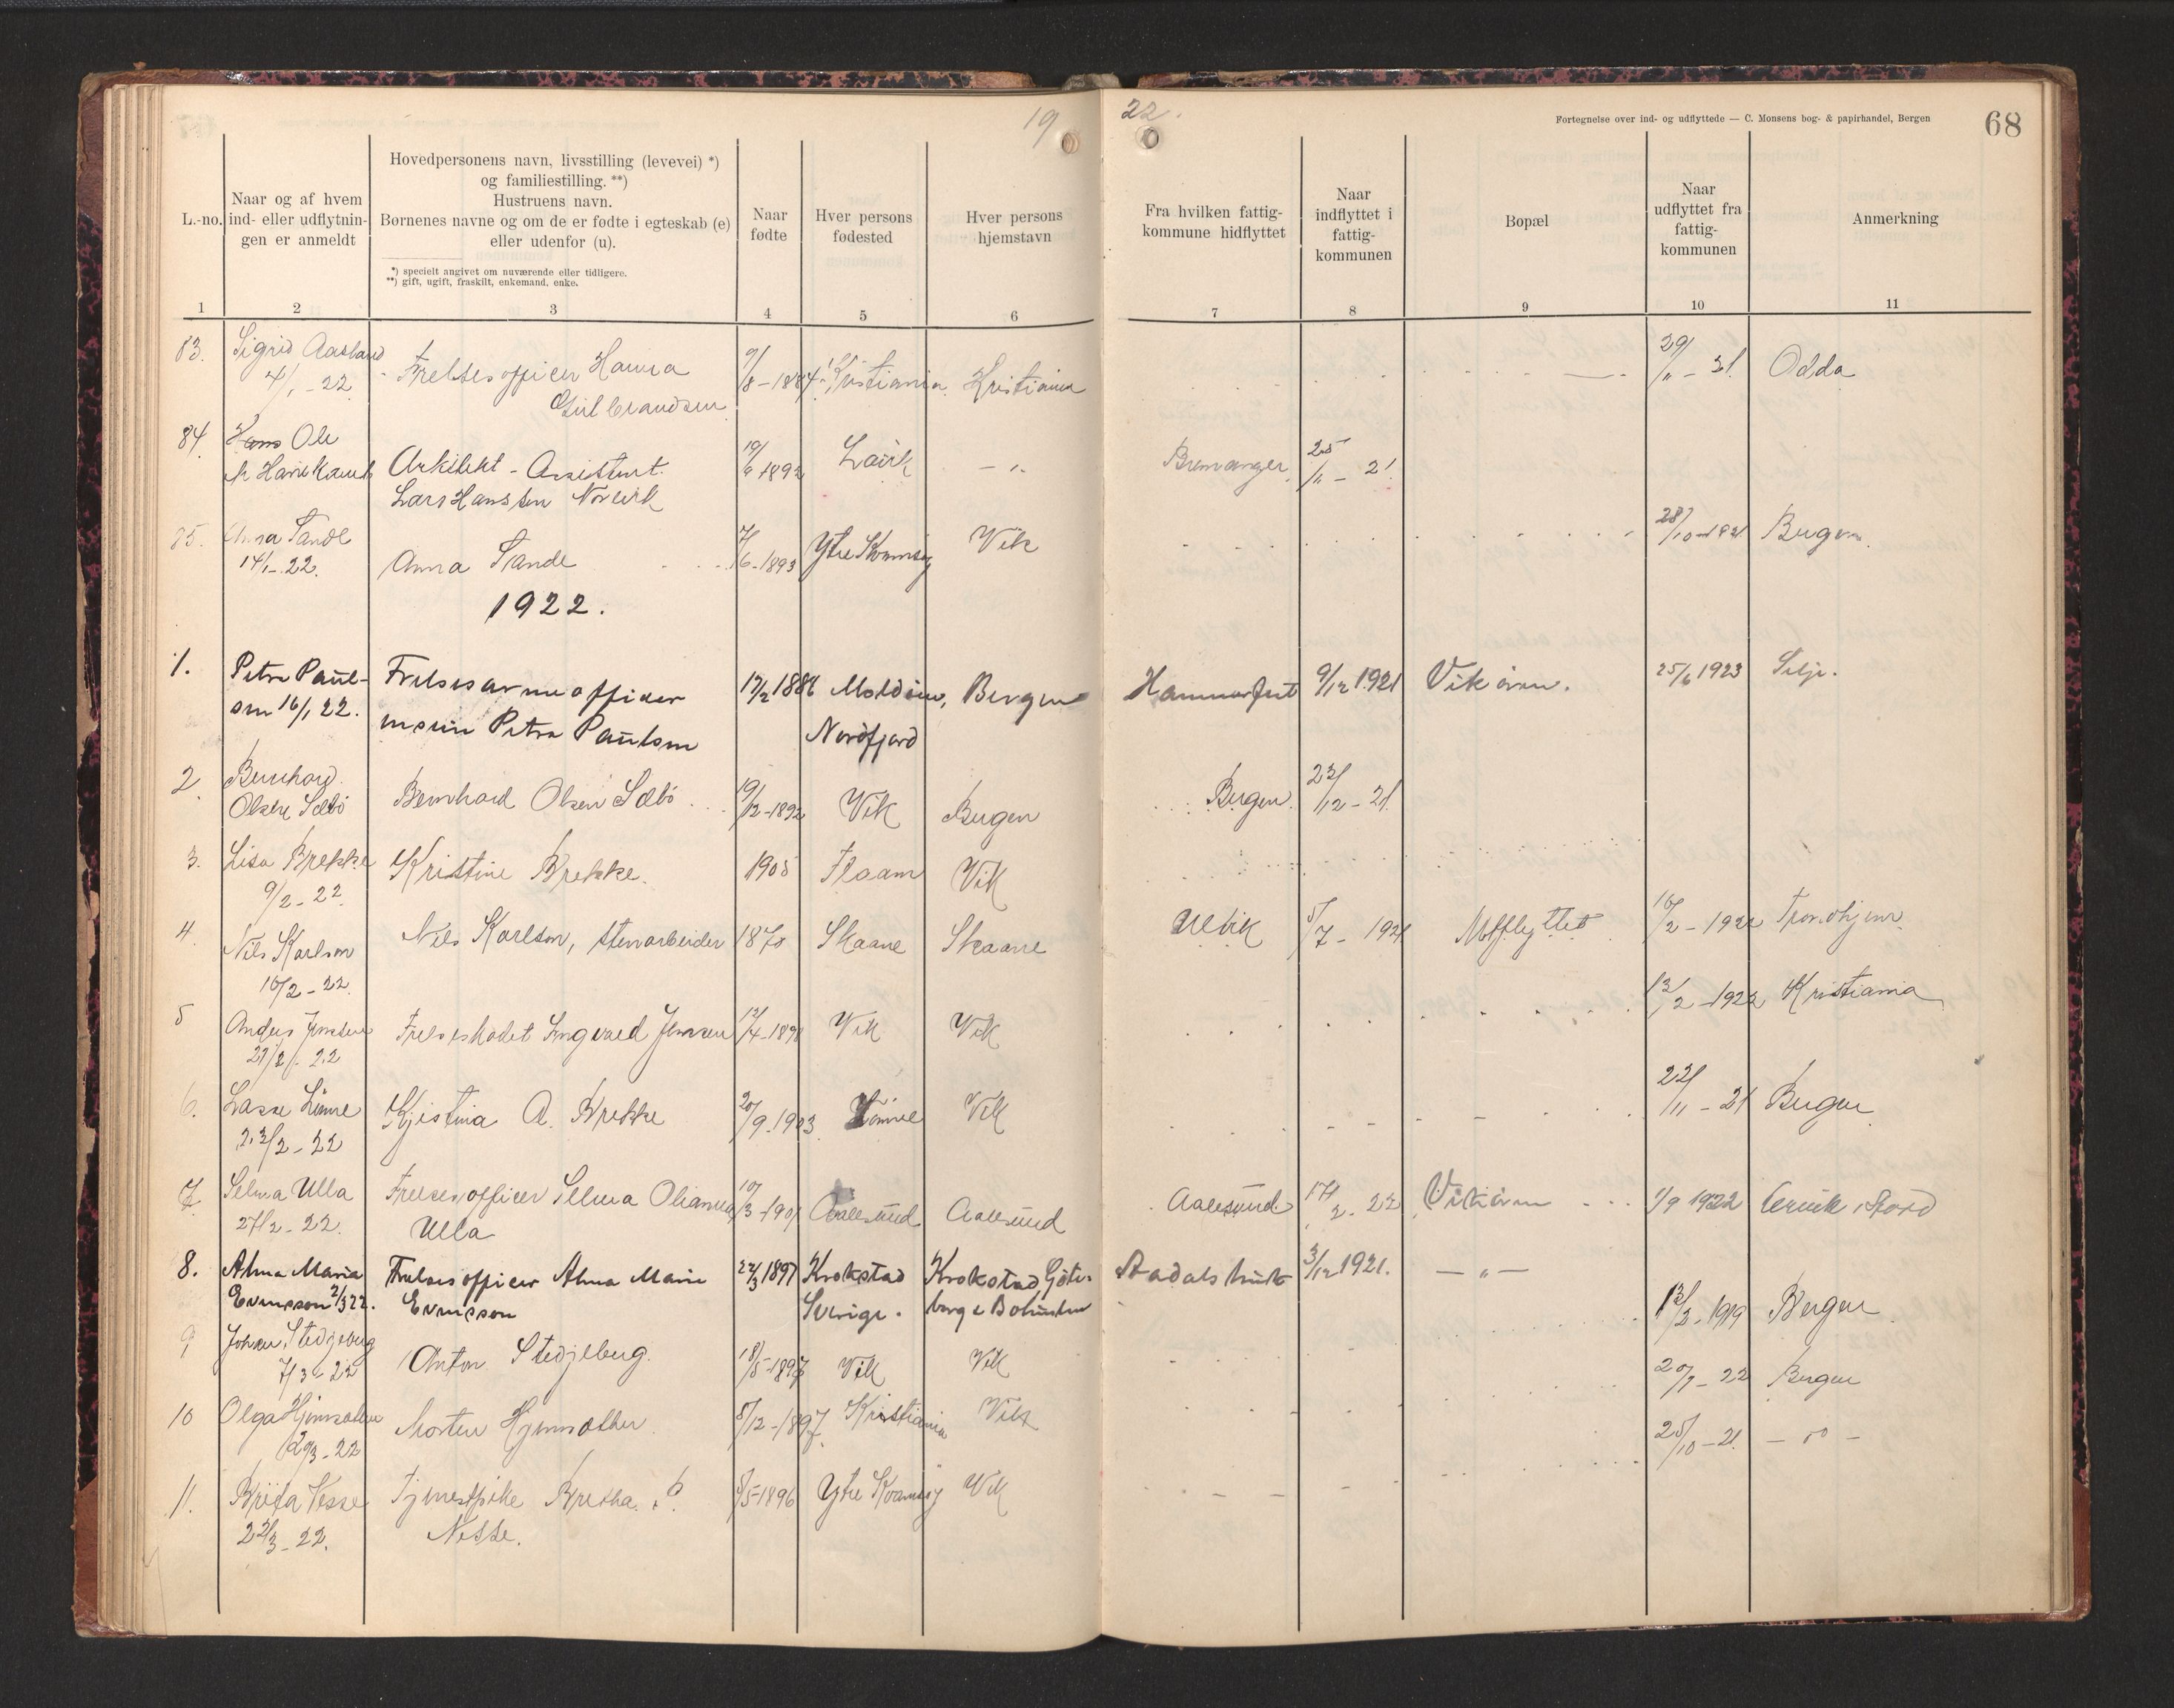 19
22.
Fortegnelse over ind- og udflyttede — C. Monsens bog- & papirhandel, Bergen
68
L.-no.
Naar og af hvem
ind- eller udflytnin-
gen er anmeldt
Hovedpersonens navn, livsstilling (levevei) *)
og familiestilling. **)
Hustruens navn.
Børnenes navne og om de er fødte i egteskab (e)
eller udenfor (u).
*) specielt angivet om nuværende eller tidligere.
**) gift, ugift, fraskilt, enkemand, enke.
Naar
fødte
Hver persons
fødested
Hver persons
hjemstavn
Fra hvilken fattig-
kommune hidflyttet
Naar
indflyttet i
fattig-
kommunen
Bopæl
Naar
udflyttet fra
fattig-
kommunen
Anmerkning
1 2 3 4 5 6 7 8 9 10 11
83. Sigrid Aasland Frelsesofficer Hanna 9/8-1884 Kristiania Kristiania 29/11-21 Odda
4/1-22 Gulbrandsen
84. Hans Ole Arkitekt-Assistent 19/6 1892 Larvik -"- Bremanger 25/11-21
Lars Hanssen Norevik
85. Anna Sande Anna Sande 7/6-1893 Ytre Kvamsøy Vik 28/10-1921 Bergen
14/1-22.
1922.
1. Petra Paul- Frelsesarmeofficer 17/2 1886 Moldöen, Bergen Hammerfest 9/12 1921 Vikören. 25/6 1923 Selje.
sen 16/1 22. Petra Paulsen Nordfjord
2. Bernhard Bernhard Olsen Sæbö 19/12-1892 Vik Bergen Bergen 23/12-21
Olsen Sæbö
3. Lisa Brekke Kristine Brekke. 1905 Flaam Vik
9/2-22.
4. Nils Karlson Nils Karlson, stenarbeider 1870 Skaane Skaane Ulvik 5/7-1921 Utflyttet 16/2-1922 Trondhjem
16/2-22.
5 Anders Jenssen Frelseskadet Ingvard Jenssen 12/4-1898 Vik Vik 13/2-1922 Kristiania
21/2-22
6. Lasse Lönne Kjistina A. Brekke 20/9-1903 Lönne Vik 22/11-21 Bergen
23/2-22
7. Selma Ulla Frelsesofficer Selma Olianna 10/3-1901 Aalesund Aalesund Aalesund 17/2-22 Vikören 1/9 1922 Leirvik i Stord
27/2-22. Ulla
8. Alma Maria Frelsesofficer Alma Maria 22/3 1897 Krokstad Krokstad, Göte- Aadalsbruk 3/12 1921. -"-
Evensson 2/3 22. Evensson Sverige. borg & Bohuslen
9 Johan Stedjeberg Anton Stedjeberg. 18/5-1897 Vik Vik 13/2-1919 Bergen
7/3-22
10 Olga Hjermsæther Morten Hjermsæther 5/12-1897 Kristiania Vik 20/2-22 Bergen
29/3-22
11. Brita Nesse Tjenestpike Bretha 5/5-1896 Ytre Kvamsøy Vik 25/10-21. -"-
22/3-22. Nesse.